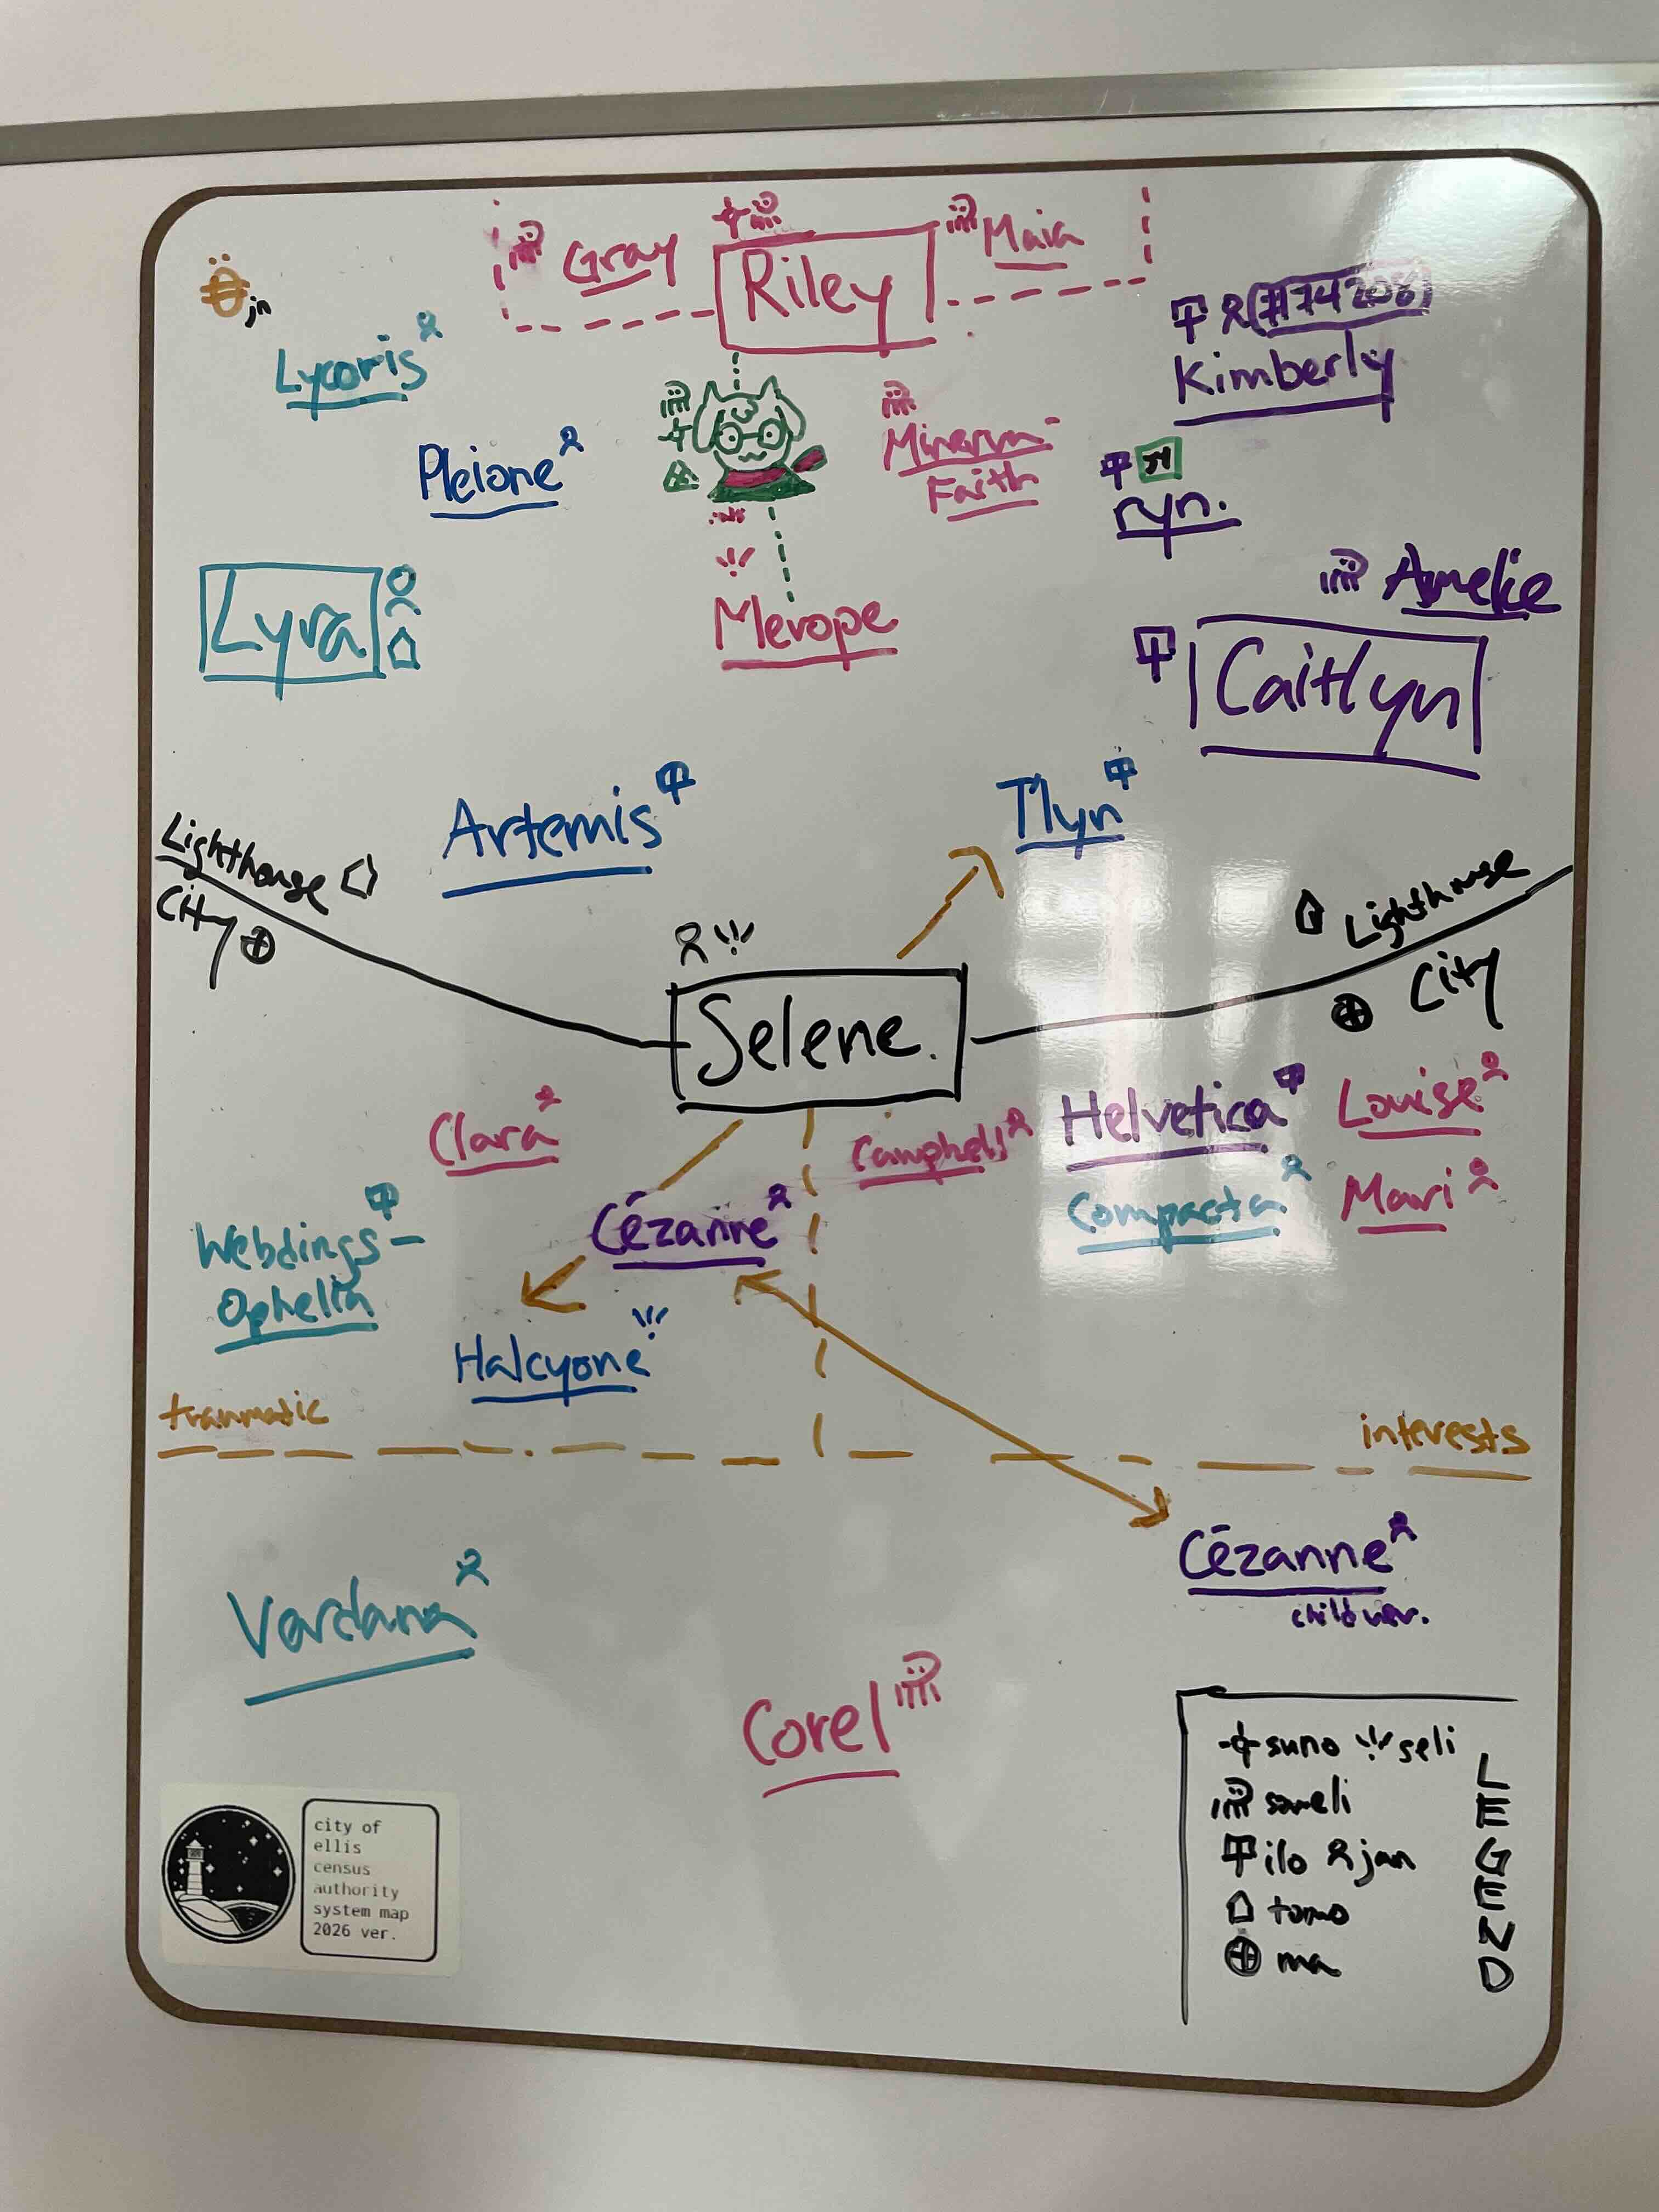 Gray
Riley
Maia
jn
Lycoris
(7174208)
Kimberly
Pleione
Minerva-
Faith
ryn.
Lyra
Merope
Amelie
Caitlyn
Artemis
Tlyn
Lighthouse
City
Lighthouse
City
Selene.
Clara
Campbell
Helvetica
Louise
Cézanne
Compacta
Mari
Webdings-
Ophelia
Halcyone
traumatic
interests
Cézanne
child ver.
Verdana
Corel
suno seli
soweli
ilo jan
tomo
ma
LEGEND
city of
ellis
census
authority
system map
2026 ver.